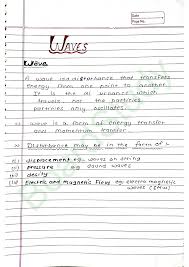 Date
Page No.
WAVES
Wave
A wave is a disturbance that transfers
energy from one point to another.
It is the disturbance which
travels, not the particles
particles only oscillates.
wave is a form of energy transfer
and momentum transfer.
Disturbance may be in the form of
(i) displacement eg: waves on string
(ii) pressure eg: sound waves
(iii) density
(iv) Electric and Magnetic Field eg: electro magnetic
waves (EMW)